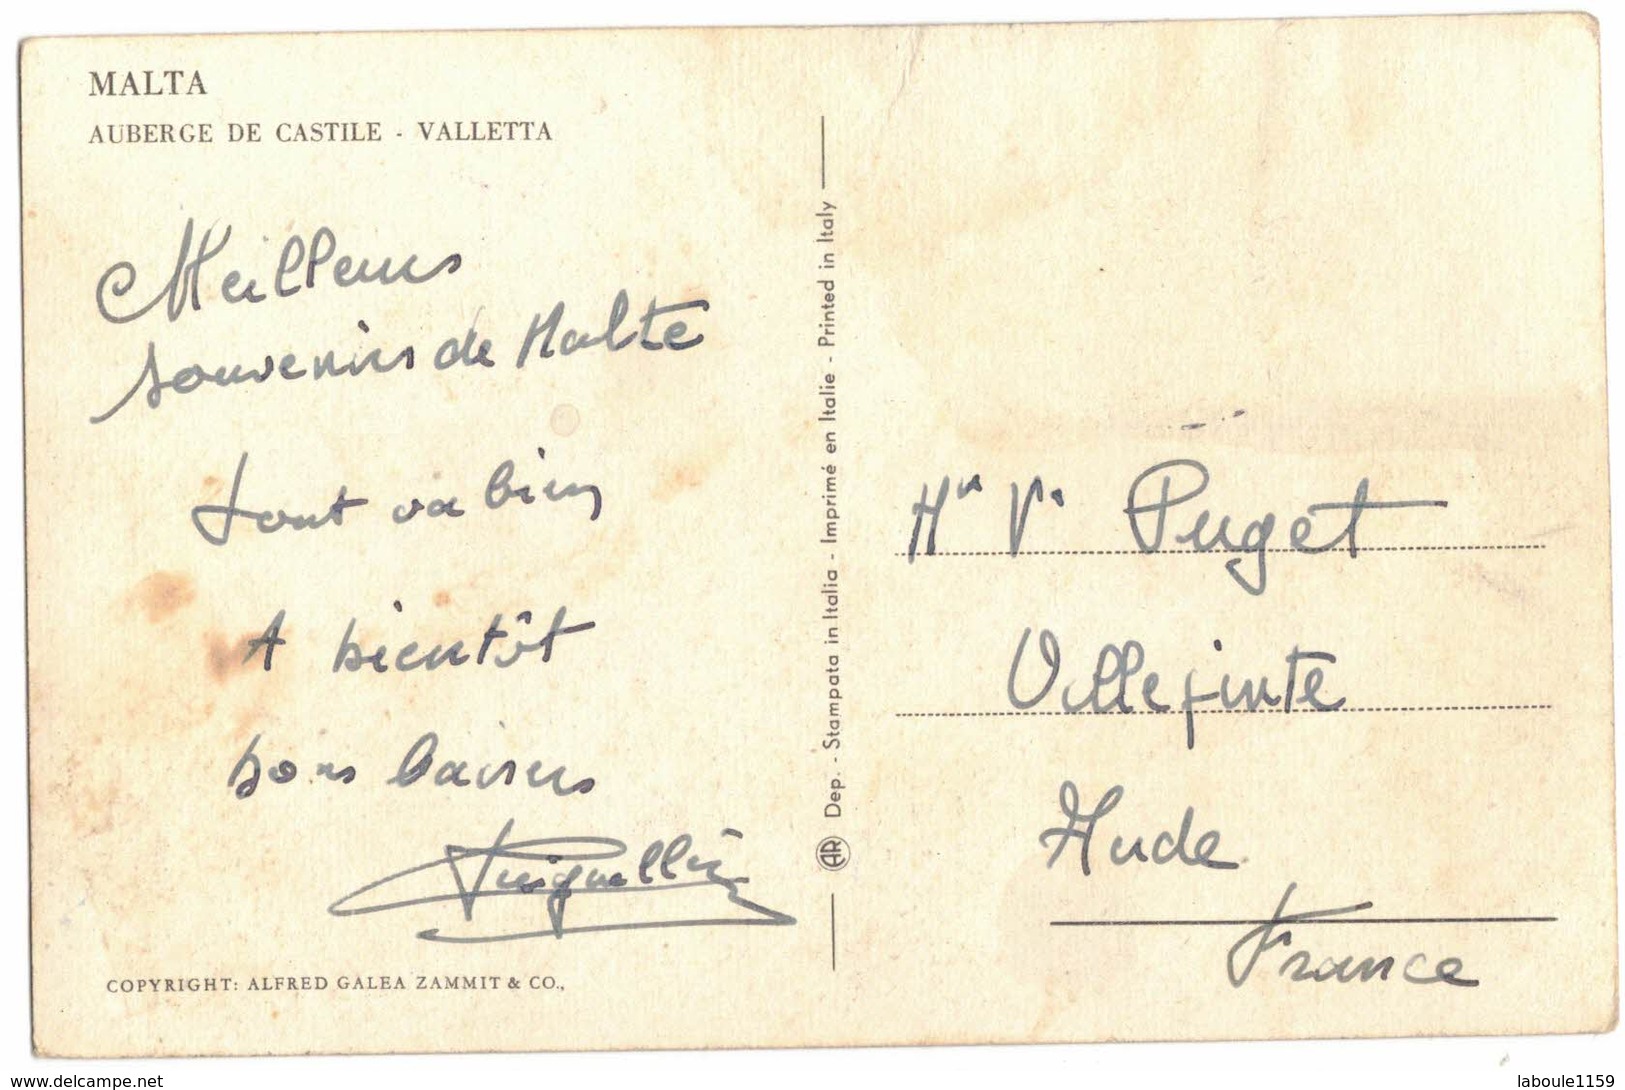 MALTA
AUBERGE DE CASTILE - VALLETTA
Meilleurs
souvenirs de Malte
tout va bien
A bientôt
bons baisers
COPYRIGHT: ALFRED GALEA ZAMMIT & CO.,
AR Dep. - Stampata in Italia - Imprimé en Italie - Printed in Italy
Puget
Aude
France
www.delcampe.net
laboule1159